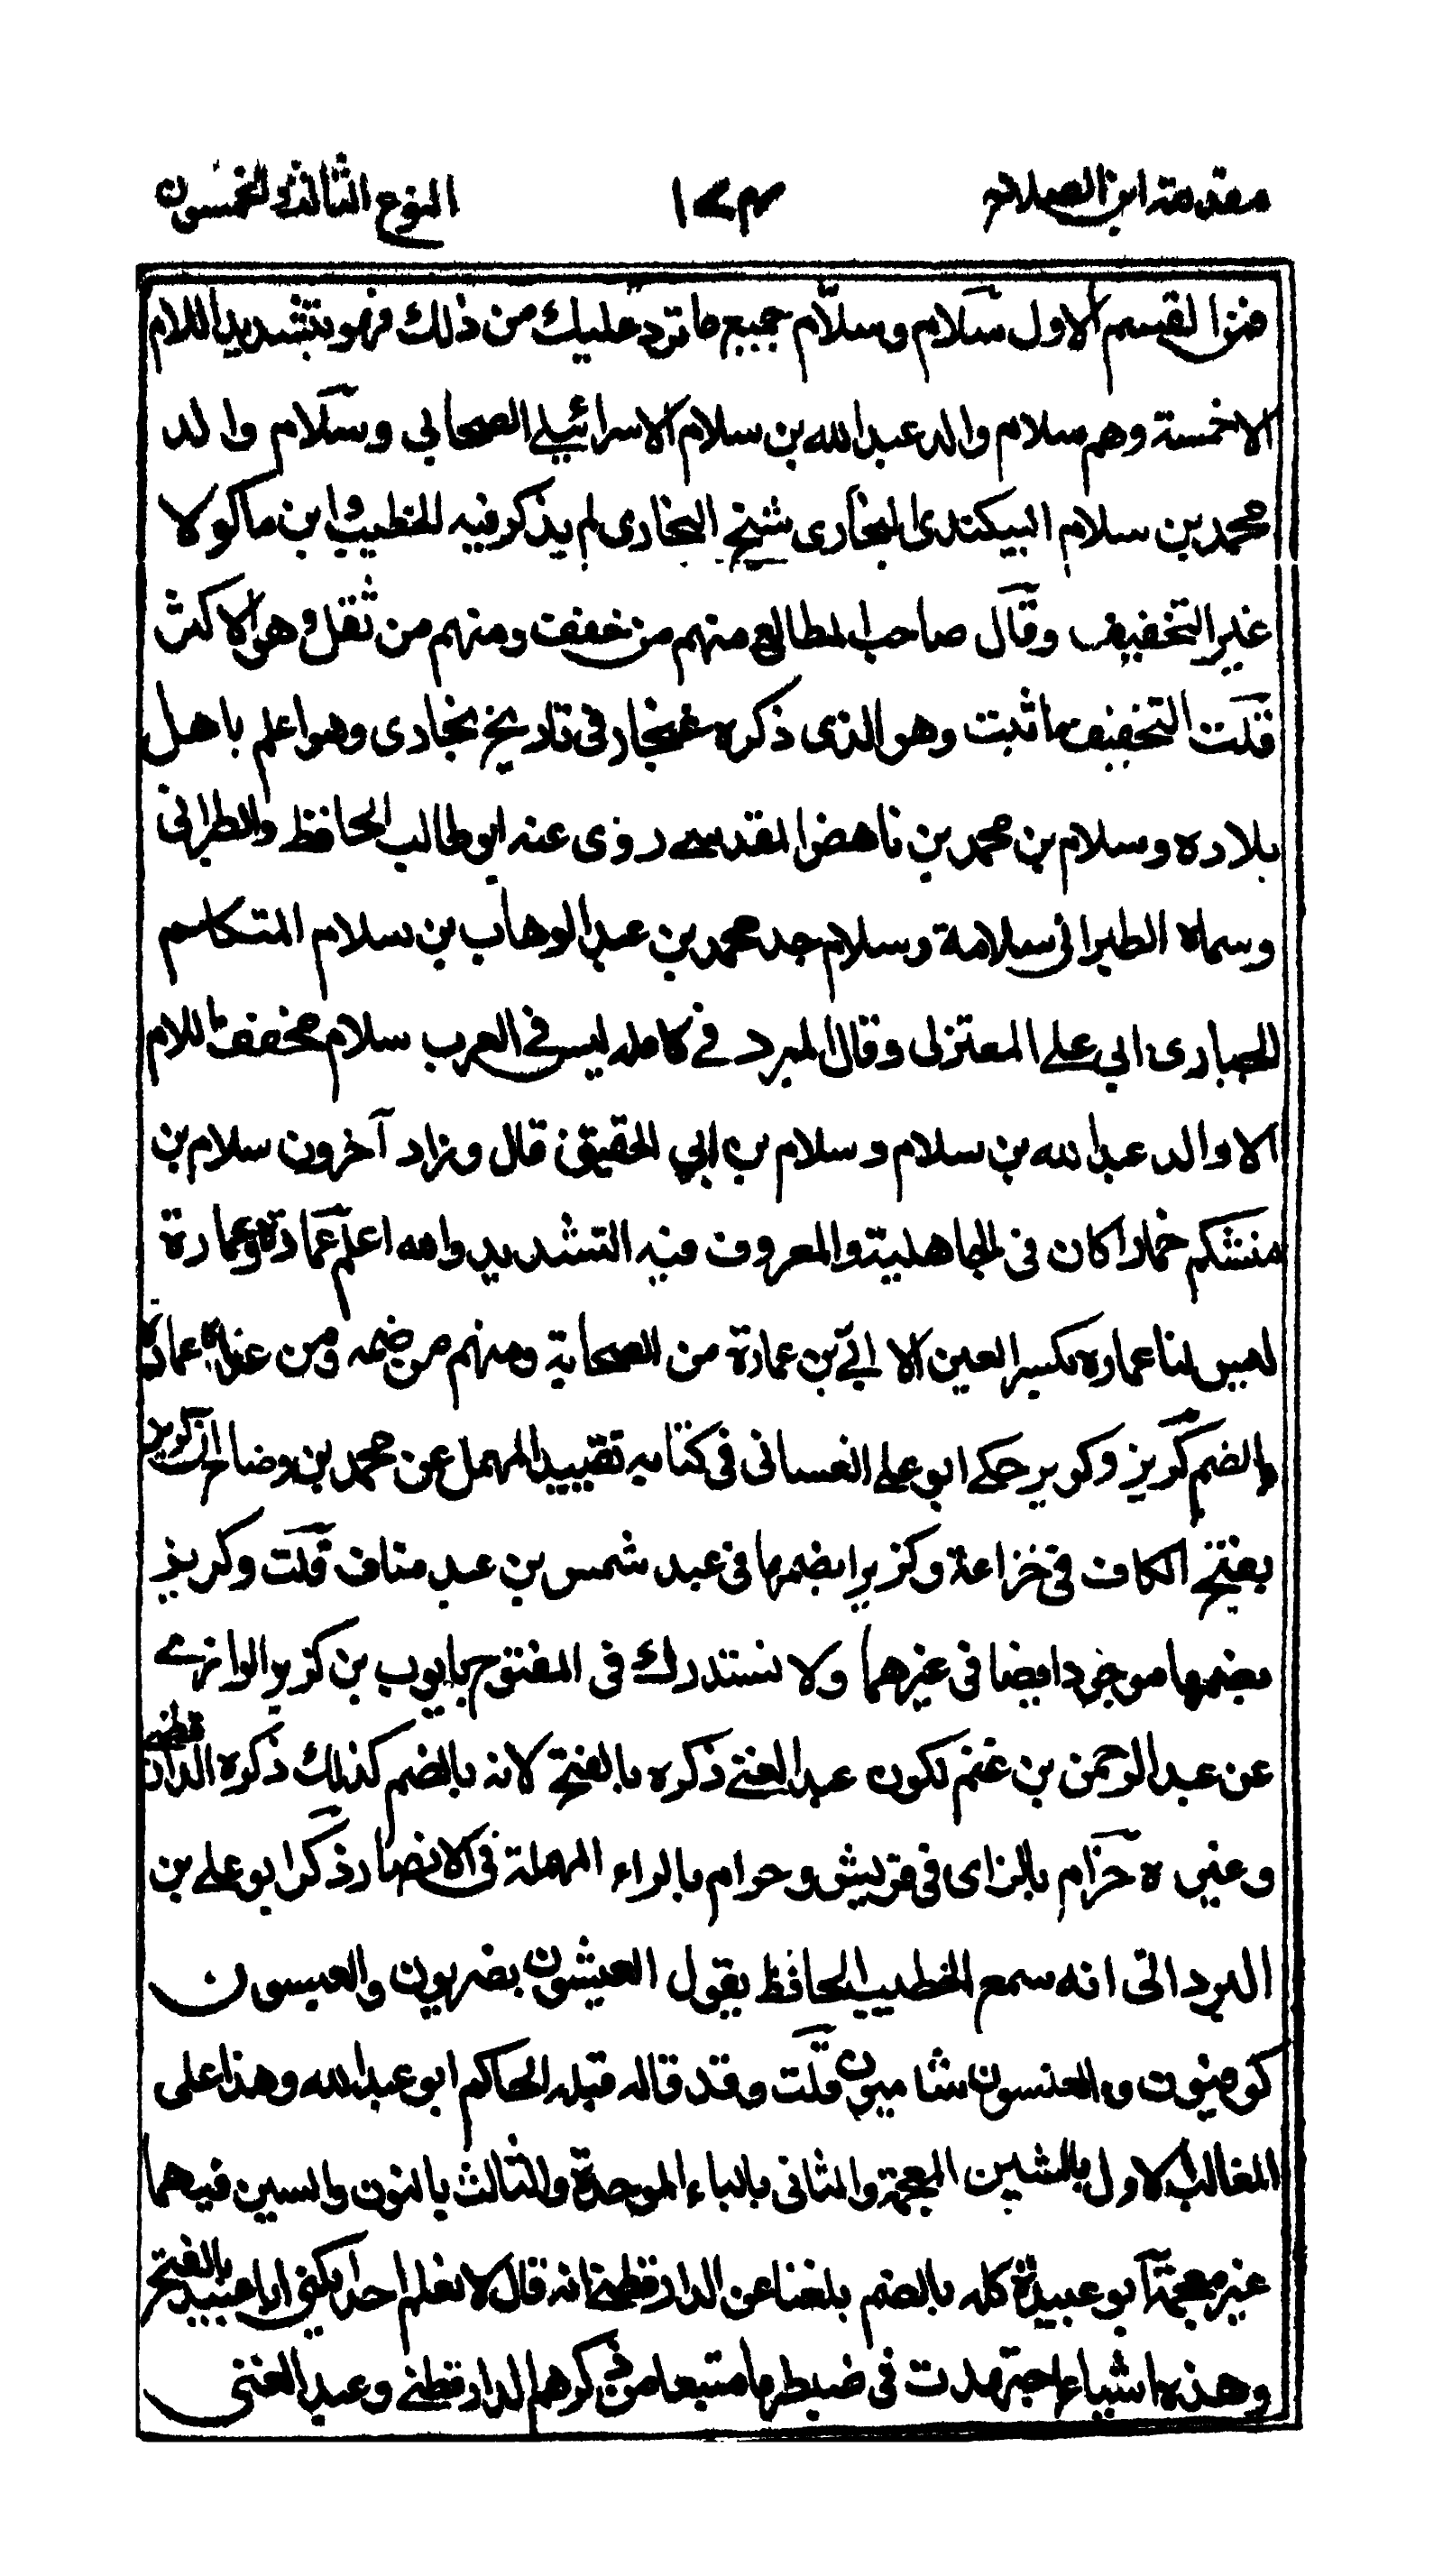 مقدمة ابن الصلاح ١٧٣ النوع الثالث والخمسون
فمن القسم الاول سلام وسلّام جميع ما ترد عليك من ذلك فهو بتشديد اللام
الا خمسة وهم سلام والد عبد الله بن سلام الاسرائيلي الصحابي وسلام والد
محمد بن سلام البيكندي البخارى شيخ البخارى لم يذكر فيه الخطيب وابن ماكولا
غير التخفيف وقال صاحب المطالع منهم من خفف ومنهم من ثقل وهو الاكثر
قلت التخفيف اثبت وهو الذى ذكره غنجار فى تاريخ بخارى وهو اعلم باهل
بلاده وسلام بن محمد بن ناهض المقدسى روى عنه ابو طالب الحافظ والطبرانى
وسماه الطبرانى سلامة وسلام جد محمد بن عبد الوهاب بن سلام المتكلم
الجبارى ابي على المعتزلى وقال المبرد فى كامله ليس فى العرب سلام مخفف اللام
الا والد عبد الله بن سلام وسلام بن ابي الحقيق قال وزاد آخرون سلام بن
مشكم خمارا كان فى الجاهلية والمعروف فيه التشديد والله اعلم عمارة وعمارة
ليس لنا عمارة بكسر العين الا ابي بن عمارة من الصحابة ومنهم من ضمه ومن عداه عمارة
بالضم كريز وكريز حكى ابو على الغسانى فى كتابه تقييد المهمل عن محمد بن وضاح ان كريز
بفتح الكاف فى خزاعة وكريزا بضمها فى عبد شمس بن عبد مناف قلت وكريز
بضمها موجود ايضا فى غيرهما ولا نستدرك فى المفتوح بايوب بن كريز الراوى
عن عبد الرحمن بن غنم لكون عبد الغنى ذكره بالفتح لانه بالضم كذلك ذكره الدارقطنى
وغيره حزام بالزاى فى قريش وحرام بالراء المهملة فى الانصار ذكر ابو على بن
البردانى انه سمع الخطيب الحافظ يقول العيشون بصريون والعبسون
كوفيون والعنسون شاميون قلت وقد قاله قبله الحاكم ابو عبد الله وهذا على
الغالب الاول بالشين المعجمة والثانى بالباء الموحدة والثالث بالنون والسين فيهما
غير معجمة ابو عبيدة كله بالضم بلغنا عن الدارقطنى انه قال لا نعلم احدا يكنى ابا عبيدة بالفتح
وهذه اشياء اجتهدت فى ضبطها متتبعا من ذكرهم الدارقطنى وعبد الغنى